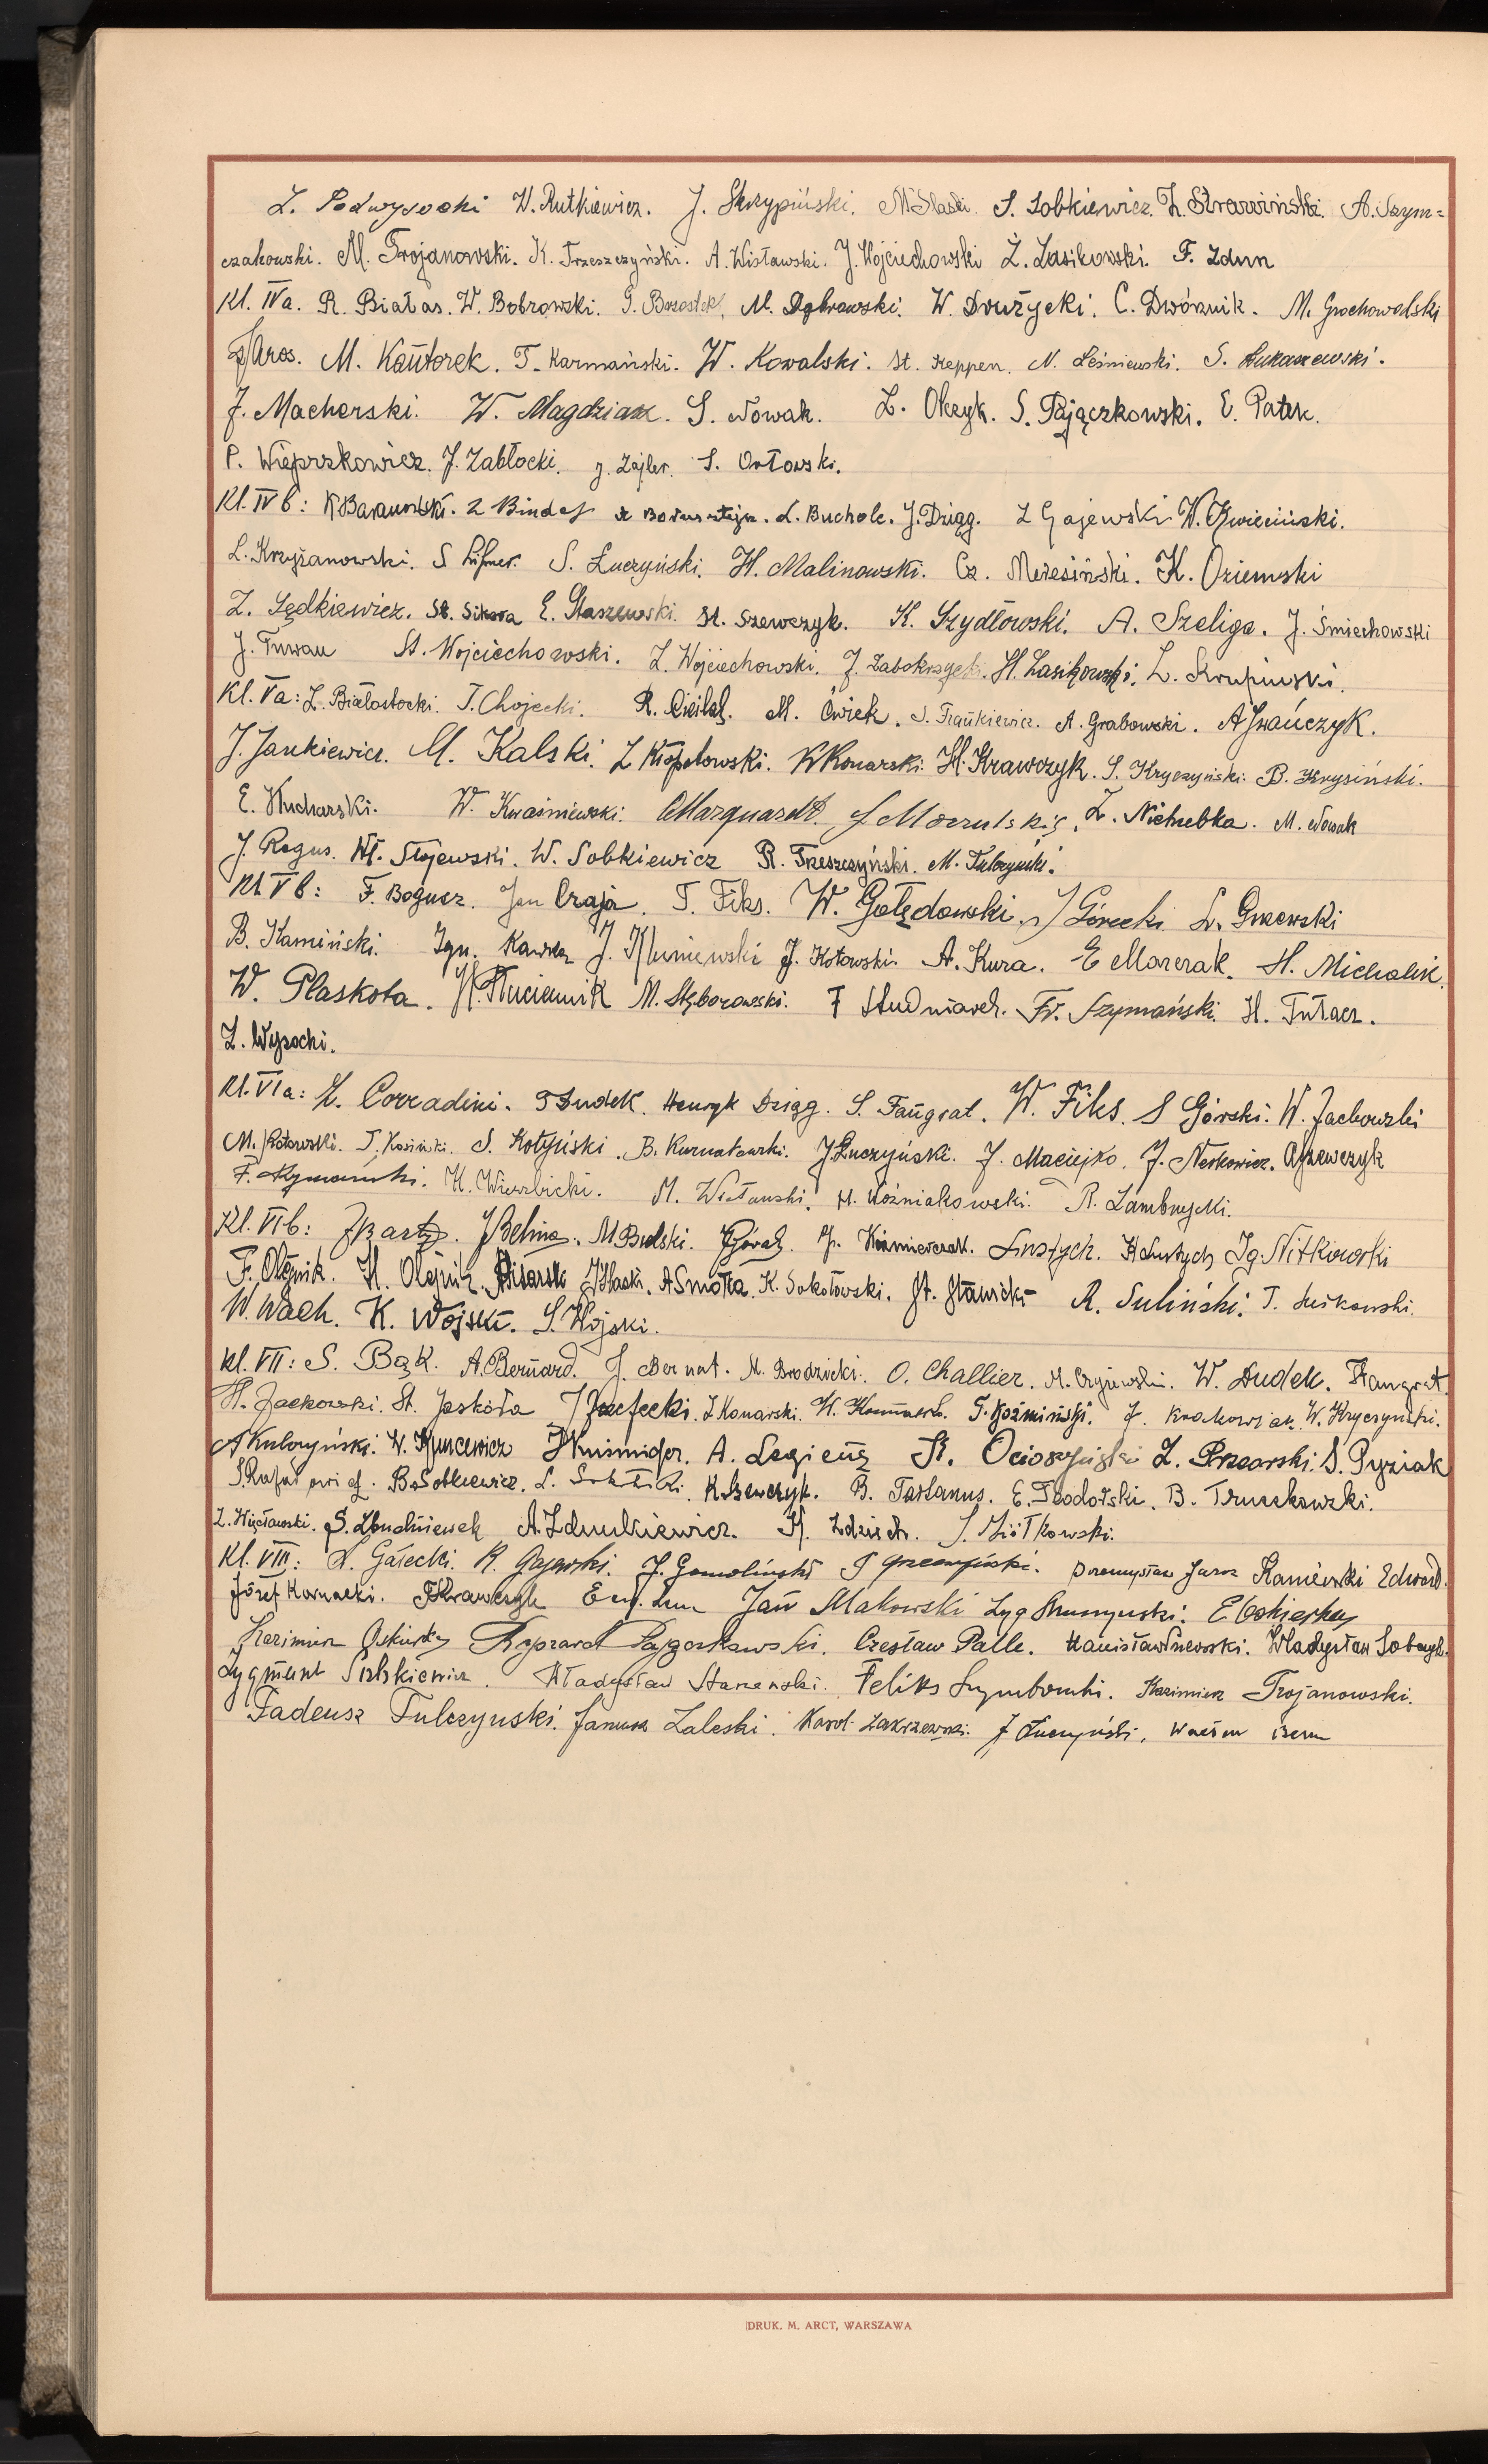 Z. Podwysocki W. Rutkiewicz. J. Skrzypiński. M Slaski. S. Sobkiewicz. Z. Strawiński. A. Szym=
czakowski. M. Trojanowski. K. Trzeszczyński. A. Wisławski. J. Wojciechowski Z. Zasikowski. F. Zdun
Kl. IVa. R. Białas. W. Bobrowski. M. Dąbrowski. W. Drużycki. C. Dwórznik. M. Grochowalski
Jaros. M. Kantorek. T. Karmański. W. Kowalski. St. Keppen. N. Leśniewski. S. Łukaszewski.
J. Macherski. W. Magdziak. S. Nowak. Z. Olczyk. S. Pajączkowski. E. Patek.
P. Wieprzkowicz. J. Zabłocki. J. Zajler. S. Orłowski.
Kl. IV b: K Baranowski. Z Binder L. Bucholc. J. Dziąg. Z Gajewski W. Kwieciński.
L. Krzyżanowski. S. Łuczyński. H. Malinowski. Cz. K. Oziemski
Z. Sędkiewicz. St. Sikora E. Staszewski. St. Szewczyk. K. Szydłowski. A. Szeliga. J. Śmiechowski
J. Tuwan St. Wojciechowski. Z. Wojciechowski. J. Zabokrzycki. H. Zasikowski. L. Krupiński.
Kl. Va: Z. Białostocki. T. Chojecki. R. Cieślak. M. Ćwiek. S. Frankiewicz. A. Grabowski. A Iwańczyk.
J. Jankiewicz. M. Kalski. Z Kłopotowski. K Konarski. H. Krawczyk. S. Kryczyński. B. Krysiński.
E. Kucharski. W. Kwaśniewski. Marquardt. Z. Niehubka. M. Nowak
J. Rogus. Wł. Stojewski. W. Sobkiewicz R. Trzeszczyński. M. Tulczyński.
Kl V b: F. Bogusz. Jan Czaja. T. Fiks. W. Gołędowski. J Górecki L. Guzewski
B. Kamiński. Ign. Kawka J. Kluniewski J. Kotowski. A. Kura. E Marczak. H. Michalik.
W. Płaskota. M. Stęborowski. F Studniarek. Fr. Szymański. H. Tułacz.
Z. Wysocki.
Kl. VIa: Z. Corradini. S Dudek. Henryk Dziąg. S. Fangrat. W. Fiks. S Górski. W. Jachowski
M. Kotowski. T. Kosiński. S. Kotyński. B. Kurnatowski. J Łuczyński. J. Maciejko. J. Neskowicz. A Szewczyk
F. Szymański. H. Wierzbicki. M. Wisławski. H. Woźniakowski. R. Zambrzycki.
Kl. VIb: J Bartz. J Belina. M Budski. Góral. J. Kaźmierczak. Lustych. H Lustych Ig. Nitkowski
F. Olejnik. H. Olejnik. Pisarski J Slaski. A Smołka. K. Sokołowski. St. Sławicki R. Suliński. T. Suskowski.
W. Wach. K. Wojski. S. Wojski.
Kl. VII: S. Bąk. A. Bernard. J. Bernat. M. Brodzicki. O. Challier. M. Czyżewski. W. Dudek. Fangrat.
H. Jackowski. St. Jaskóła J Józefecki. Z Konarski. T. Koźmiński. J. Krakowiak. W. Kryczyński.
A Kulczyński. W. Kuncewicz J Kuśmider. A. Legieńz K. Ocioszyński Z. Przearski. S. Pyziak
B. Sobkiewicz. K. Szewczyk. B. Tarłanus. E. Teodorski. B. Truszkowski.
Z. Więcławski. S. Zbudniewek A. Zdunkiewicz. K. Zdzisch. S. Ziółkowski.
Kl. VIII: L. Gałecki. R. Gajewski. J. Gomoliński S Grzempiński. Przemysław Jaroz Kaniewski Edward.
Józef Kornacki. F Krawczyk Jan Makowski E Oskierko
Kazimierz Oskierko Ryszard Pajączkowski. Czesław Palle. Stanisław Władysław Sobczyk.
Zygmunt Sobkiewicz. Władysław Starzeński. Feliks Szymborski. Kazimierz Trojanowski.
Tadeusz Tulczyński. Janusz Zaleski. Karol Zakrzewski. J Łuczyński. Wacław
DRUK. M. ARCT, WARSZAWA